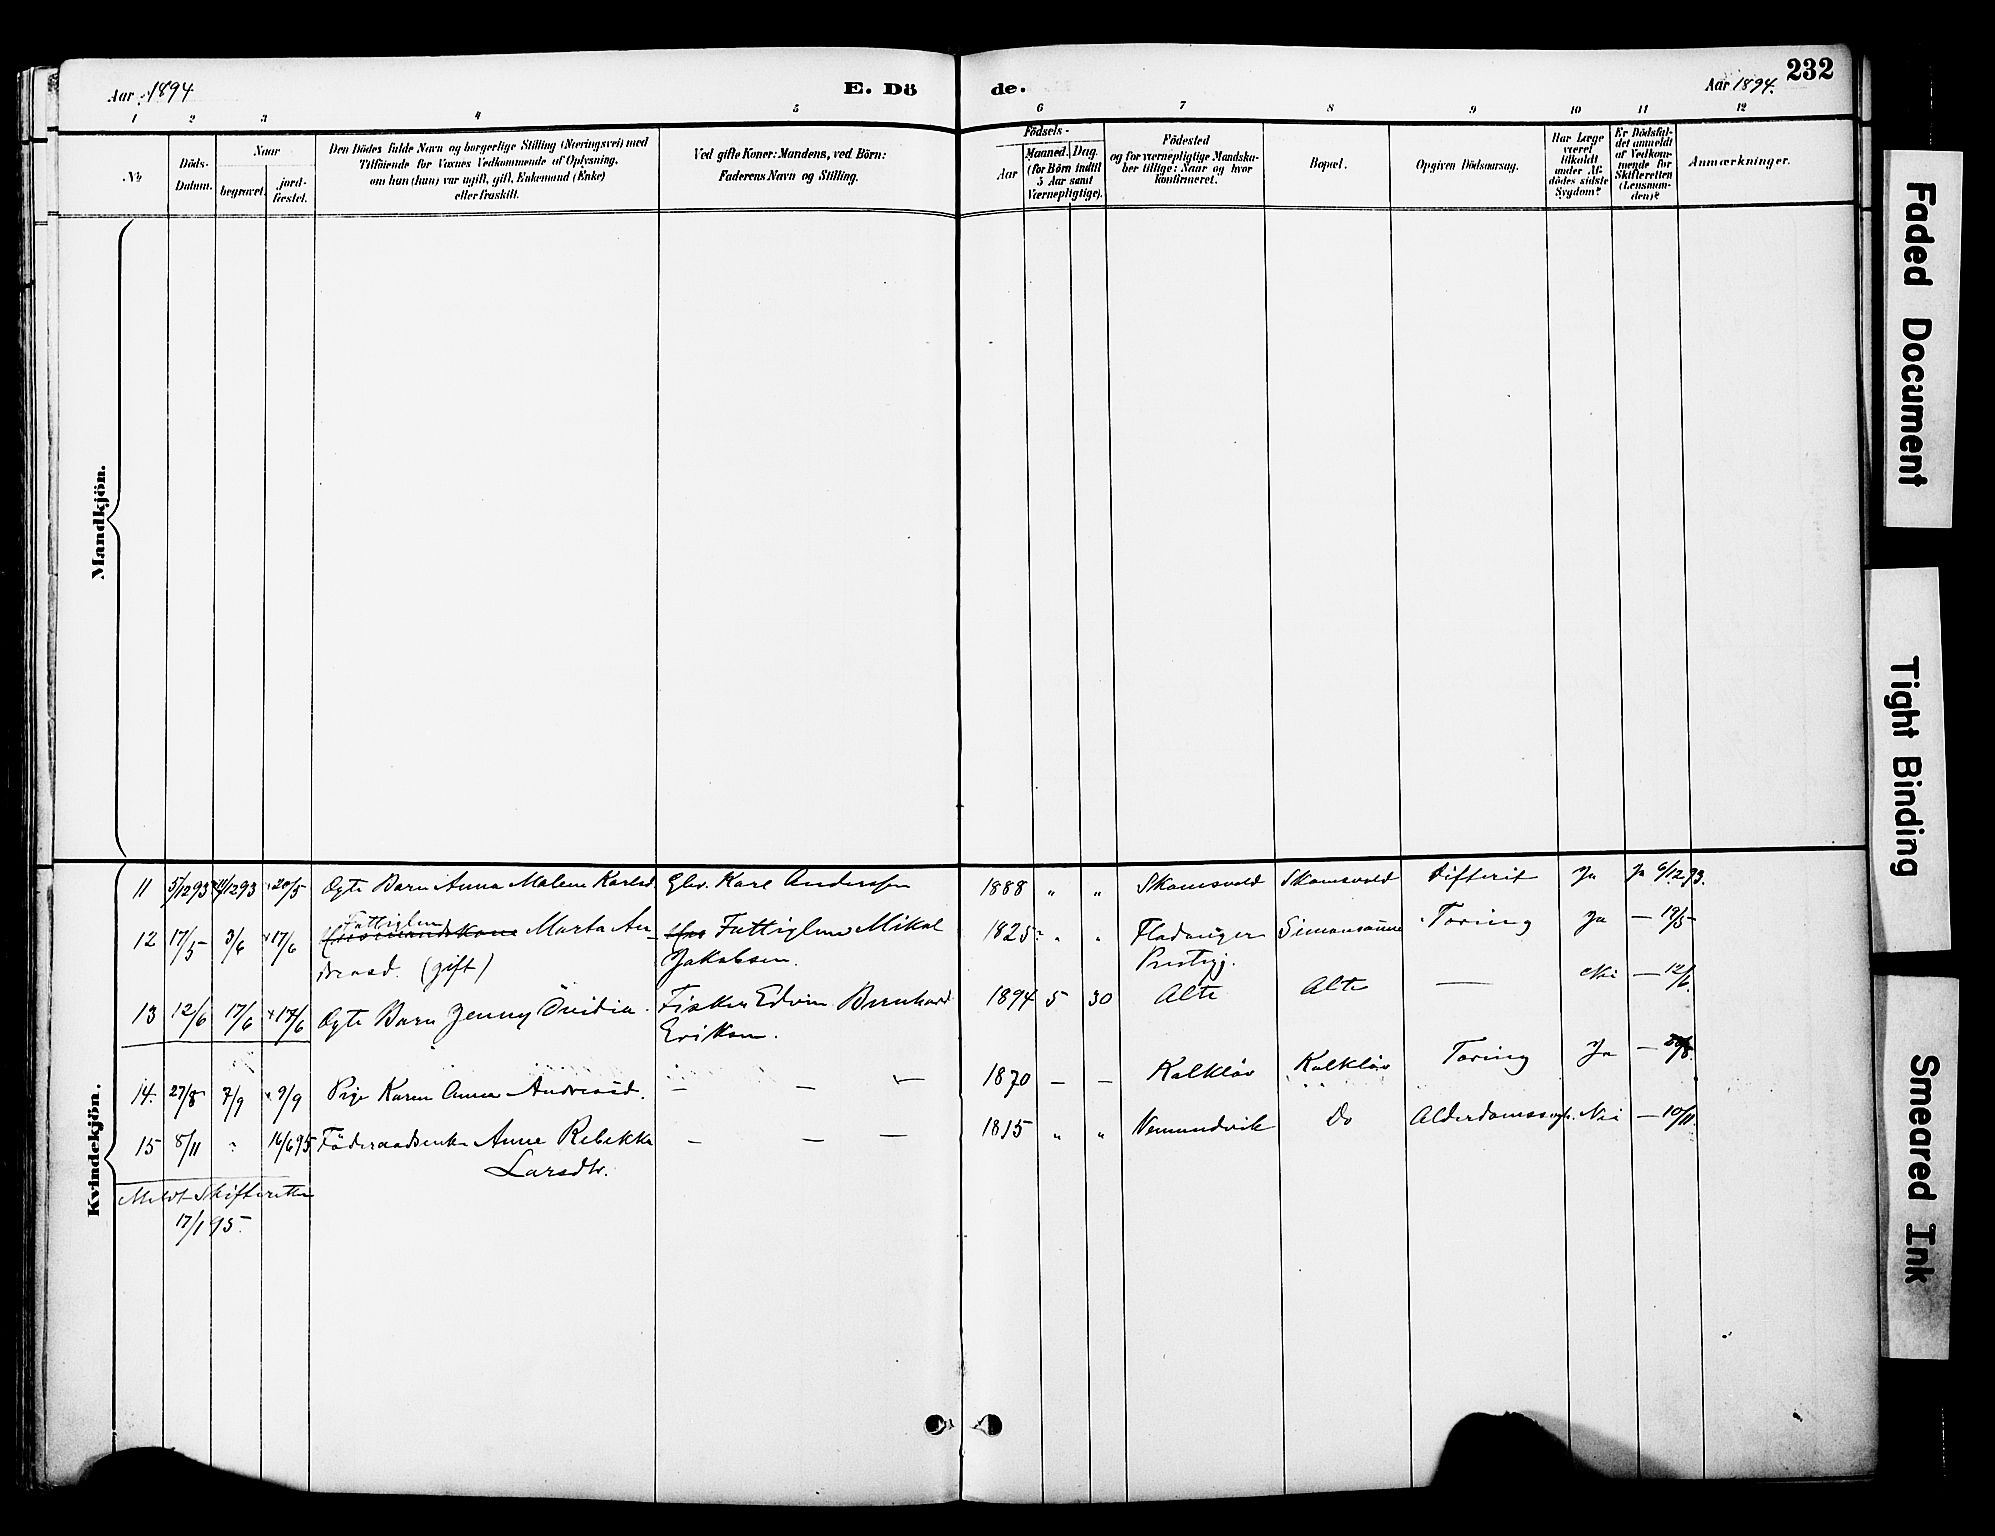 Aar 1894
E. Dö
de.
Aar 1894.
232
1 2 3 4 5 6 7 8 9 10 11 12
No
Döds-
Datum.
Naar
begravet.
jord-
fæstet.
Den Dödes fulde Navn og borgerlige Stilling (Næringsvei) med
Tilföiende for Voxnes Vedkommende af Oplysning,
om han (hun) var ugift, gift, Enkemand (Enke)
eller fraskilt.
Ved gifte Koner: Mandens, ved Börn:
Faderens Navn og Stilling.
Födsels-
Aar
Maaned. Dag.
(for Börn indtil
5 Aar samt
Værnepligtige).
Födested
og for værnepligtige Mandska-
ber tillige: Naar og hvor
konfirmeret.
Bopæl.
Opgiven Dödsaarsag.
Har Læge
været
tilkaldt
under Af-
dödes sidste
Sygdom?
Er Dödsfal-
det anmeldt
af Vedkom-
mende for
Skifteretten
(Lensman-
den)?
Anmærkninger.
Mandkjön.
Kvindekjön.
11 5/12 93 /12 93 20/5 Ægte Barn Anna Malene Karlsd. Karl Anderssen 1888 " " Skomsvold Skomsvold Difterit Ja Ja 6/12 93.
Fattiglem
12 17/5 3/6 17/6 Marta An-
dreasd. (gift) Fattiglem Mikal
Jakobsen. 1825? " " Fladanger
Prestgj. Simonsaune Tæring Ja — 19/5
13 12/6 17/6 17/6 Ægte Barn Jenny Ovidia. Fisker Edvin Bernhard
Eriksen. 1894 5 30 Alte Alte — Nei — 12/6
14. 27/8 7/9 9/9 Pige Karen Anna Andreasd. — — — 1870 — — Kalkløv Kalkløv Tæring Ja —
15 8/11 " 16/6 95 Föderaadsenke Anne Rebekka
Larsdtr. — — — 1815 " " Vemundvik Do Alderdomssvagh. Nei — 10/11
Meldt Skifteretten
17/1 95.
Faded Document
Tight Binding
Smeared Ink